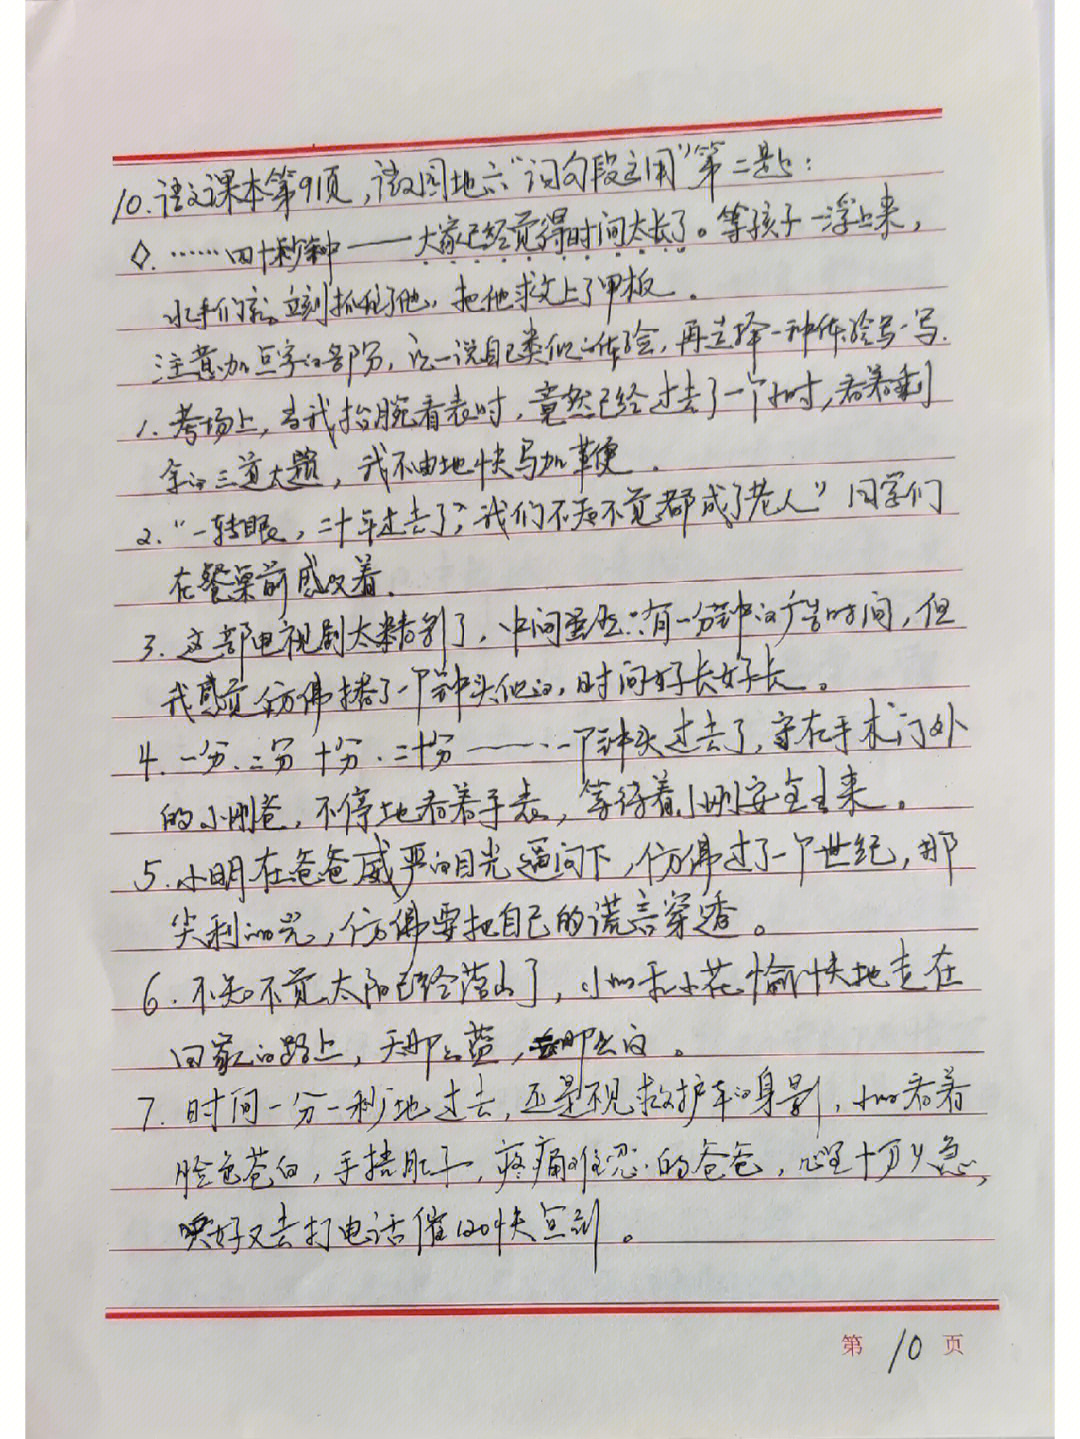 10.语文课本第91页，语文园地六“词句段运用”第二题：
◇. ……四十秒钟——大家已经觉得时间太长了。等孩子一浮上来，
水手们就立刻抓住了他，把他救上了甲板．
注意加点字的部分，说一说自己类似的体验，再选择一种体验写一写．
1. 考场上，当我抬腕看表时，竟然已经过去了一个小时，看着剩
余的三道大题，我不由地快马加鞭．
2. “一转眼，二十年过去了，我们不知不觉都成了老人”同学们
在餐桌前感叹着．
3. 这部电视剧太精彩了，中间虽然只有一分钟的广告时间，但
我感觉仿佛播了一个钟头似的，时间好长好长。
4. 一分、二分 十分．二十分——……一个钟头过去了，守在手术门外
的小刚爸，不停地看着手表，等待着小刚安全出来。
5. 小明在爸爸威严的目光逼问下，仿佛过了一个世纪，那
尖利的光，仿佛要把自己的谎言穿透。
6. 不知不觉太阳已经落山了，小明和小花愉快地走在
回家的路上，天那么蓝，云那么白。
7. 时间一分一秒地过去，还是不见救护车的身影，小明看着
脸色苍白，手捂肚子，疼痛难忍的爸爸，心里十分着急，
只好又去打电话催120快点到。
第 10 页